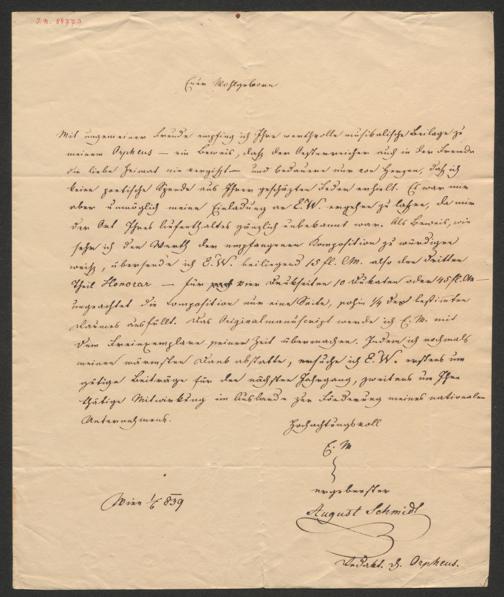 Euer Wohlgeboren
Mit ungemeiner Freude empfing ich Ihre werthvolle musikalische Beilage zu
meinem Orpheus — ein Beweis, daß der Oesterreicher auch in der Fremde
die liebe Heimat nie vergißt — und bedaure nur von Herzen, daß ich
keine poetische Spende aus Ihrer geschäzten Feder erhielt. Es war mir
aber unmöglich meine Einladung an E. W. ergehen zu lassen, da mir
der Ort Ihres Aufenthaltes gänzlich unbekannt war. Als Beweis, wie
sehr ich den Werth der empfangenen Composition zu würdigen
weiß, übersende ich E. W. beiliegend 15 fl. C. M. also den dritten
Theil Honorar — für vier Druckseiten 10 Dukaten oder 45 fl. C. M —
ungeachtet die Composition nur eine Seite, somit 1/4 des bestimten
Raumes ausfüllt. Das Originalmanuscript werde ich E. W. mit
dem Freiexemplare seiner Zeit übermachen. Indem ich nochmals
meinen wärmsten Dank abstatte, ersuche ich E. W. erstens um
gütige Beiträge für den nächsten Jahrgang, zweitens um Ihre
thätige Mitwirkung im Auslande zur Förderung meines nationalen
Unternehmens.
Hochachtungsvoll
E. W
ergebenster
August Schmidt
Redakt. d. Orpheus.
Wien 839